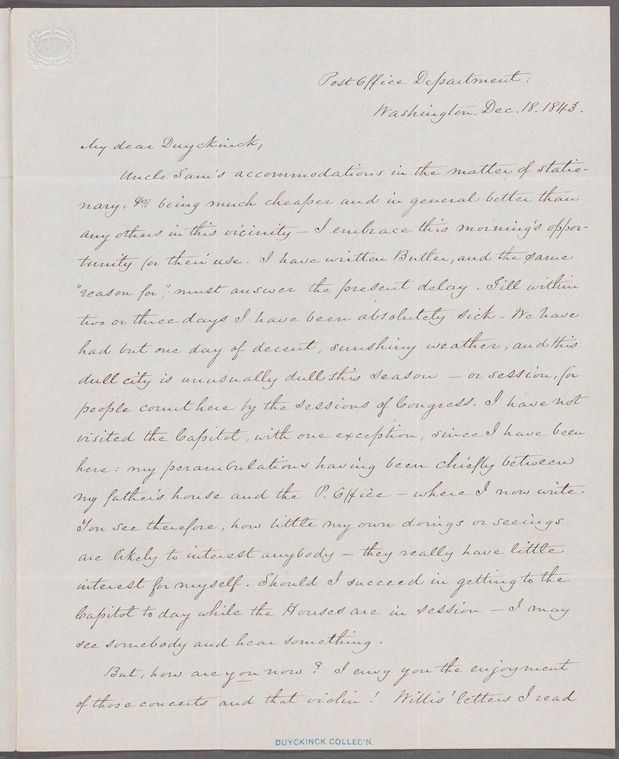 Post Office Department:
Washington. Dec. 18. 1843.
My dear Duyckinck,
Uncle Sam's accommodations in the matter of statio-
nary, &c. being much cheaper and in general better than
any others in this vicinity — I embrace this morning's oppor-
tunity for their use. I have written Butler, and the same
"reason for", must answer the present delay. Till within
two or three days I have been absolutely sick. We have
had but one day of decent, sunshiny weather, and this
dull city is unusually dull this season — or session, for
people count here by the sessions of Congress. I have not
visited the Capitol, with one exception, since I have been
here: my perambulations having been chiefly between
my father's house and the P. Office — where I now write.
You see therefore, how little my own doings or seeings
are likely to interest anybody — they really have little
interest for myself. Should I succeed in getting to the
Capitol to day while the Houses are in session — I may
see somebody and hear something.
But, how are you now? I envy you the enjoyment
of those concerts and that violin! Willis' letters I read
DUYCKINCK COLLEC'N.